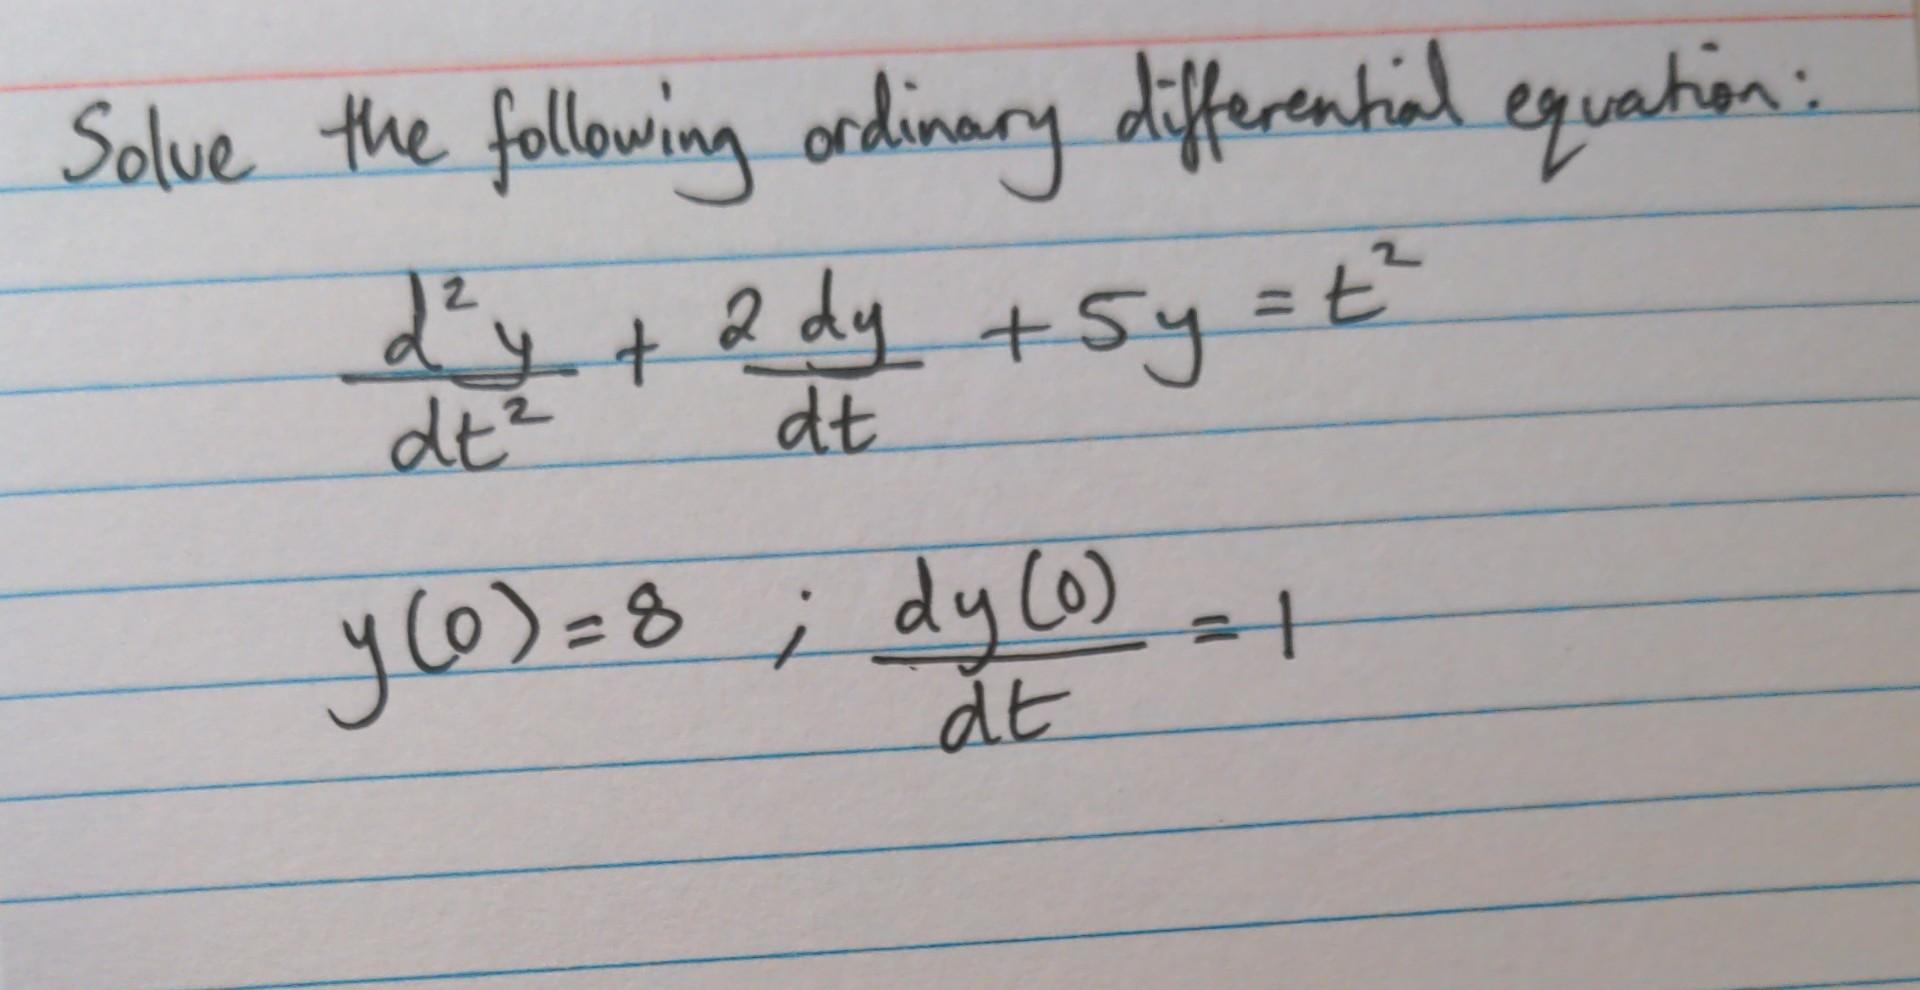 Solve the following ordinary differential equation:
d²y/dt² + 2dy/dt + 5y = t²
y(0) = 8 ; dy(0)/dt = 1